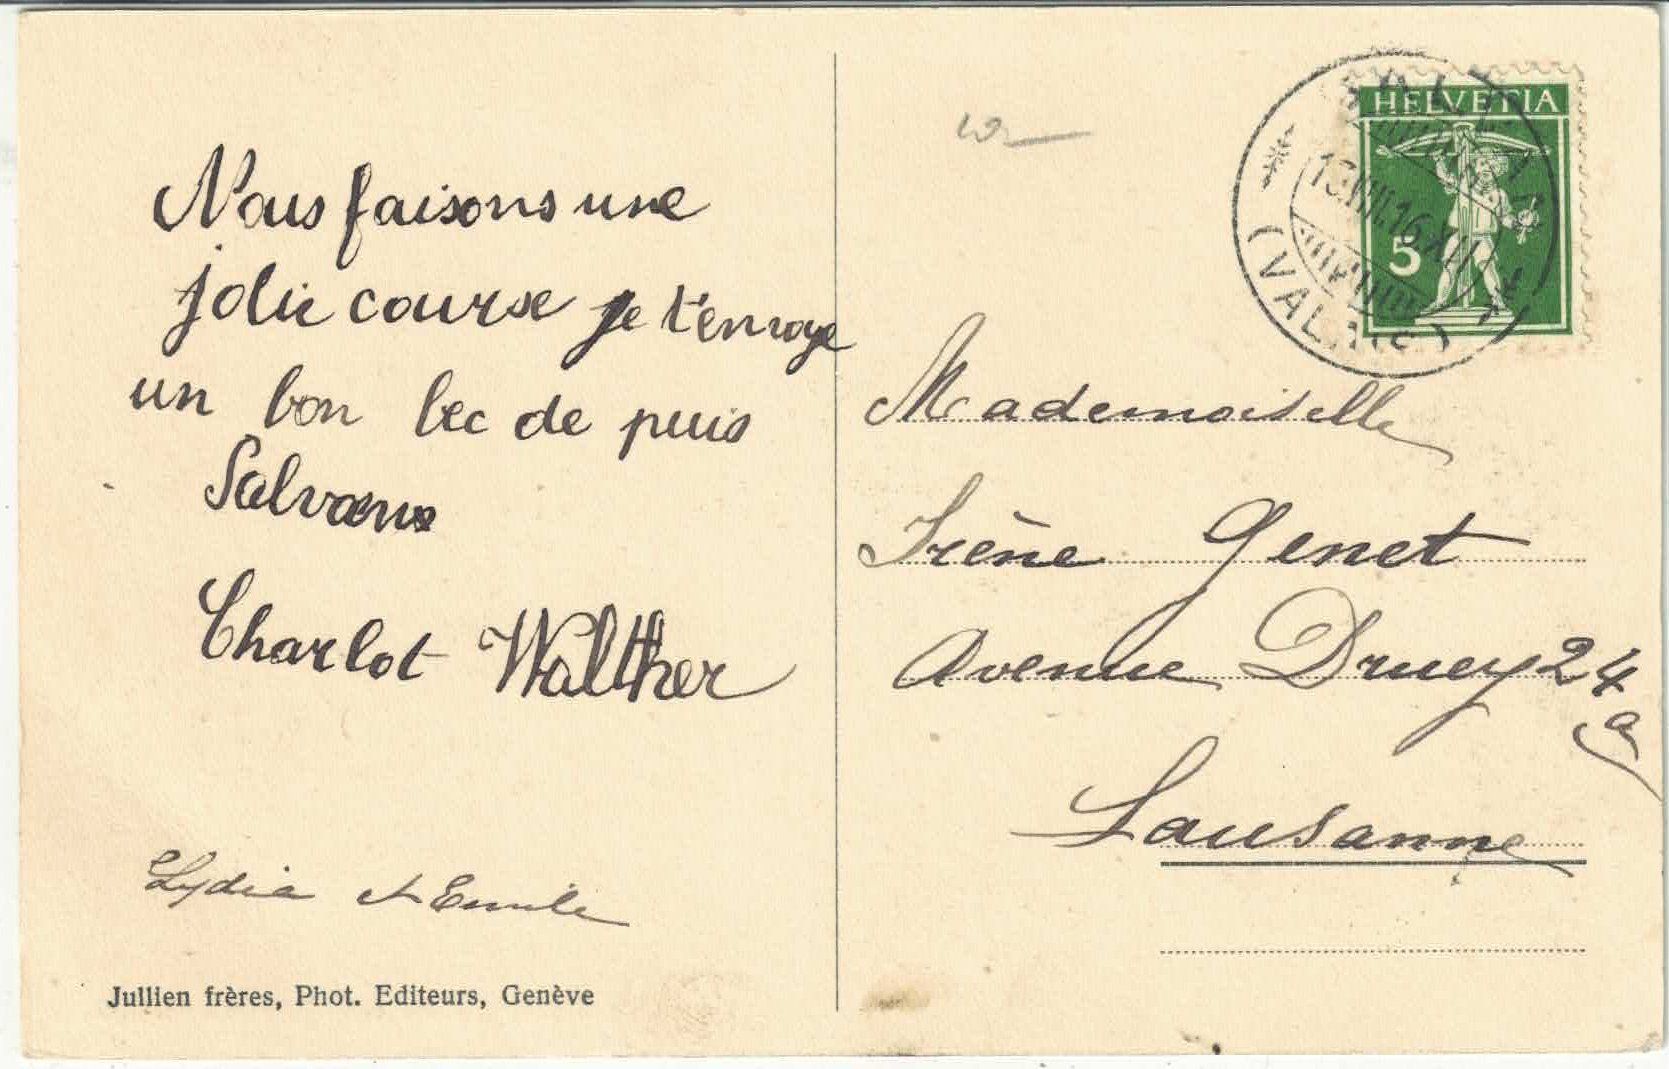 Nous faisons une
jolie course je t'envoye
un bon bec de puis
Salvan
Charlot Walther
Lydia et Emile
Jullien frères, Phot. Editeurs, Genève
HELVETIA
5
(VALAIS)
Mademoiselle
Irène Genet
Avenue Druey 24
a
Lausanne